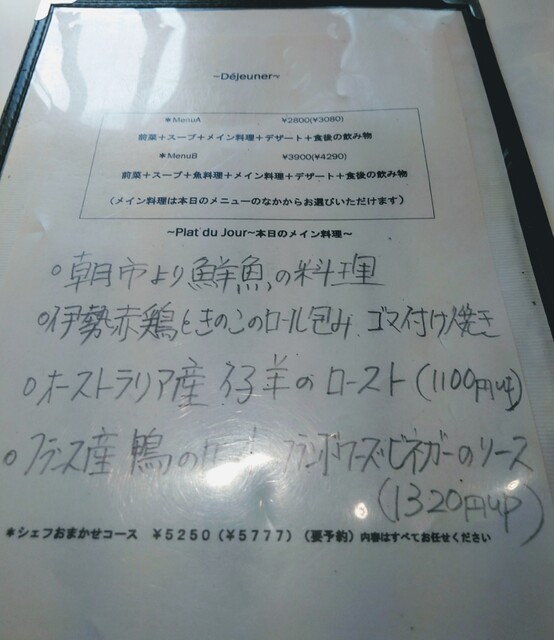 ~Déjeuner~
*MenuA ¥2800(¥3080)
前菜+スープ+メイン料理+デザート+食後の飲み物
*MenuB ¥3900(¥4290)
前菜+スープ+魚料理+メイン料理+デザート+食後の飲み物
(メイン料理は本日のメニューのなかからお選びいただけます)
~Plat du Jour~本日のメイン料理~
○朝市より鮮魚の料理
○伊勢赤鶏ときのこのロール包み ゴマ付け焼き
○オーストラリア産 仔羊のロースト (1100円up)
○フランス産 鴨の フランボワーズビネガーのソース
(1320円up)
*シェフおまかせコース ¥5250(¥5777) (要予約) 内容はすべてお任せください